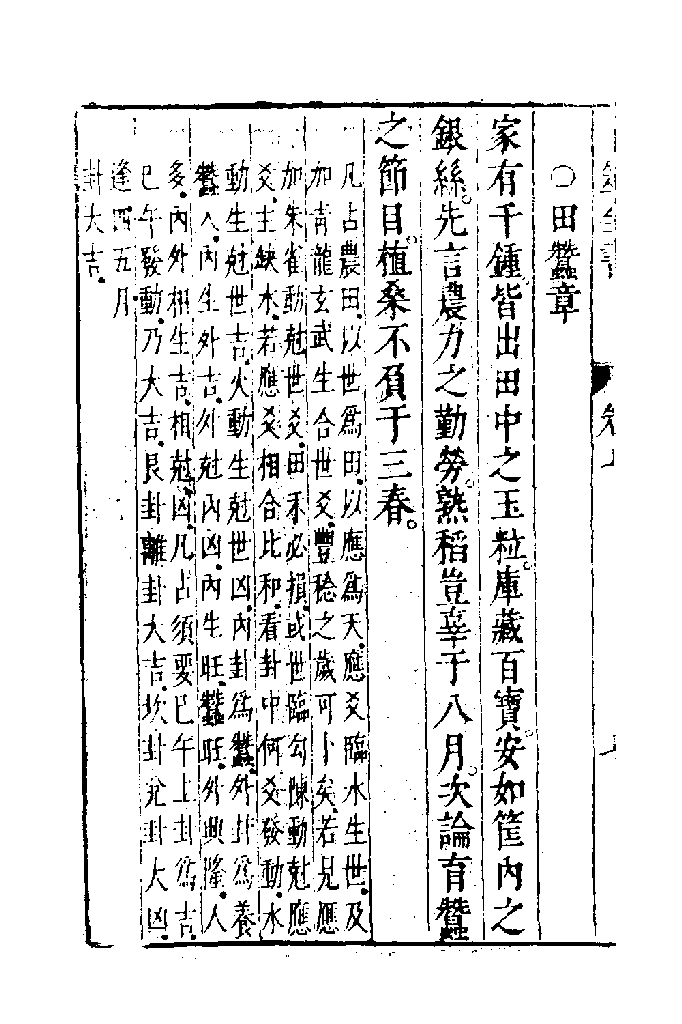 ○田蠶章
家有千鍾。皆出田中之玉粒。庫藏百寶。安如筐內之
銀絲。先言農力之勤勞。熟稻豈辜于八月。次論育蠶
之節目。植桑不負于三春。
凡占農田。以世爲田。以應爲天。應爻臨水生世。及
加青龍玄武生合世爻。豐稔之歲可卜矣。若見應
加朱雀動尅世爻。田禾必損。或世臨勾陳動尅應
爻。主缺水。若應爻相合比和。看卦中何爻發動。水
動生尅世吉。火動生尅世凶。內卦爲蠶。外卦爲養
蠶人。內生外吉。外尅內凶。內生旺。蠶旺。外興隆。人
多。內外相生吉。相尅凶。凡占須要巳午上卦爲吉。
巳午發動。乃大吉。艮卦離卦大吉。坎卦兌卦大凶。
逢四五月
卦大吉。